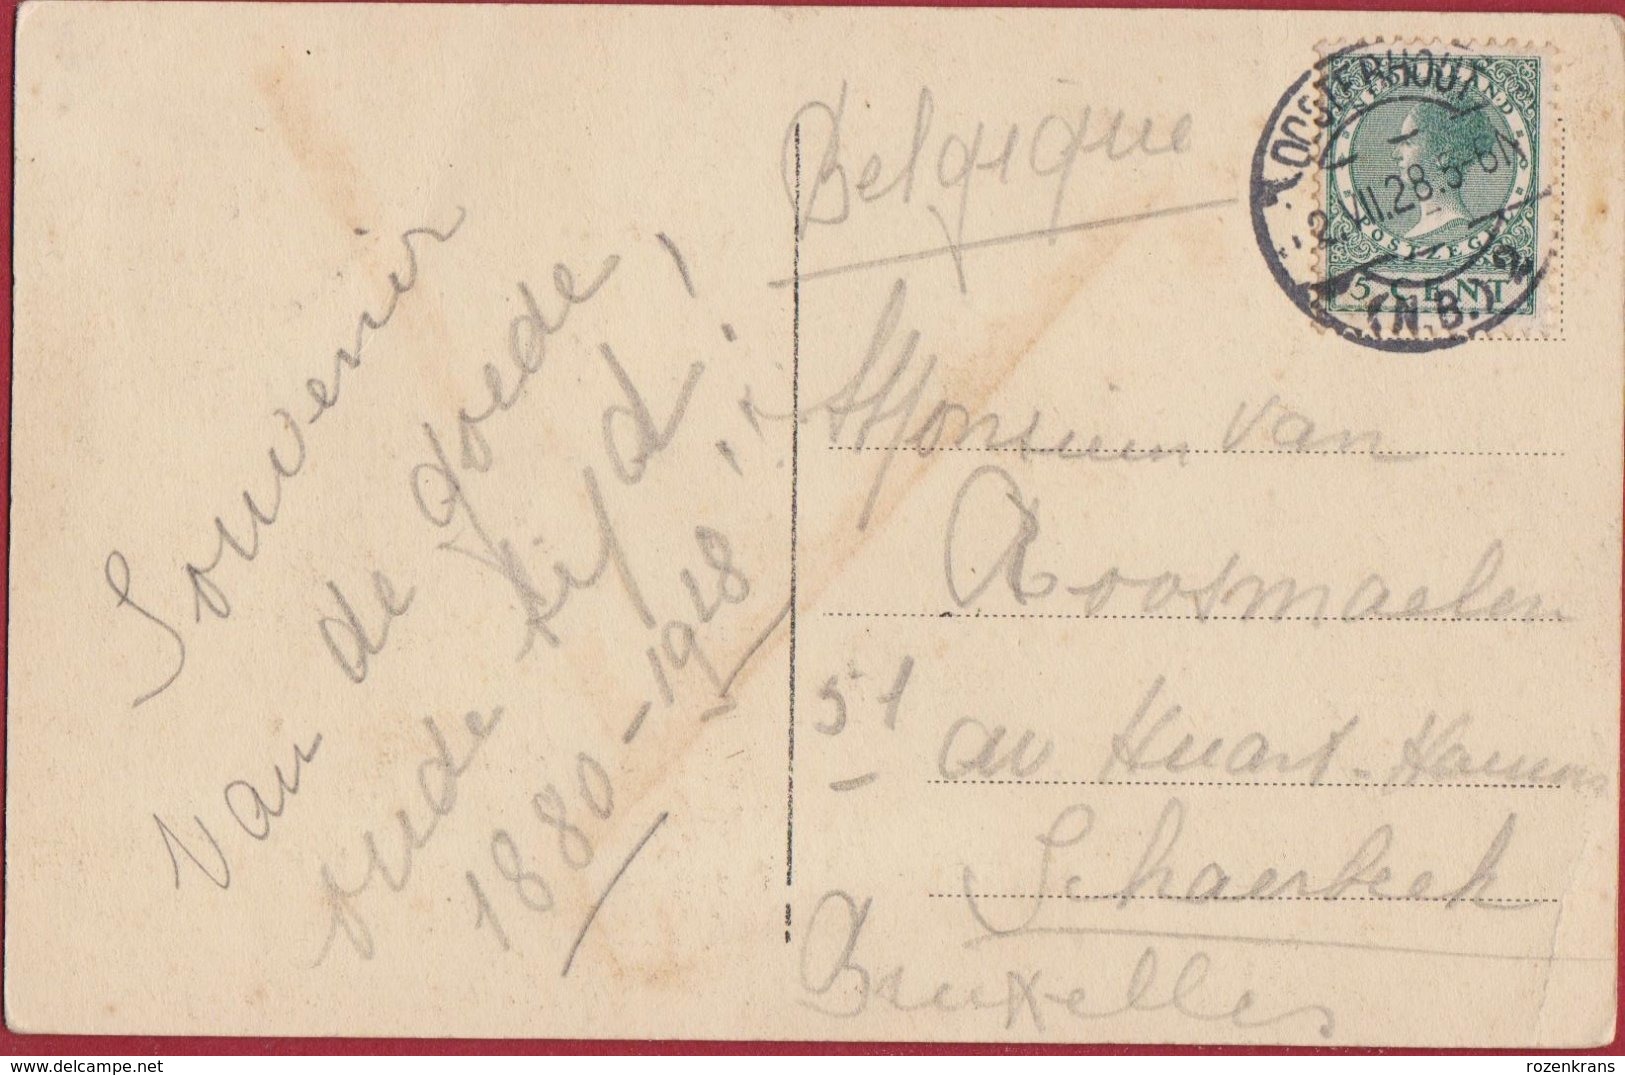 Souvenir
van de goede,
oude tijd!
1880-1928!
Belgique
OOSTERHOUT
2.VII.28.5-6N
(N.B.) 2
NEDERLAND
POSTZEGEL
5 CENT
Monsieur van
Roosmaelen
51
av Huart-Hamoir
Schaerbeek
Bruxelles
delcampe.net
rozenkrans